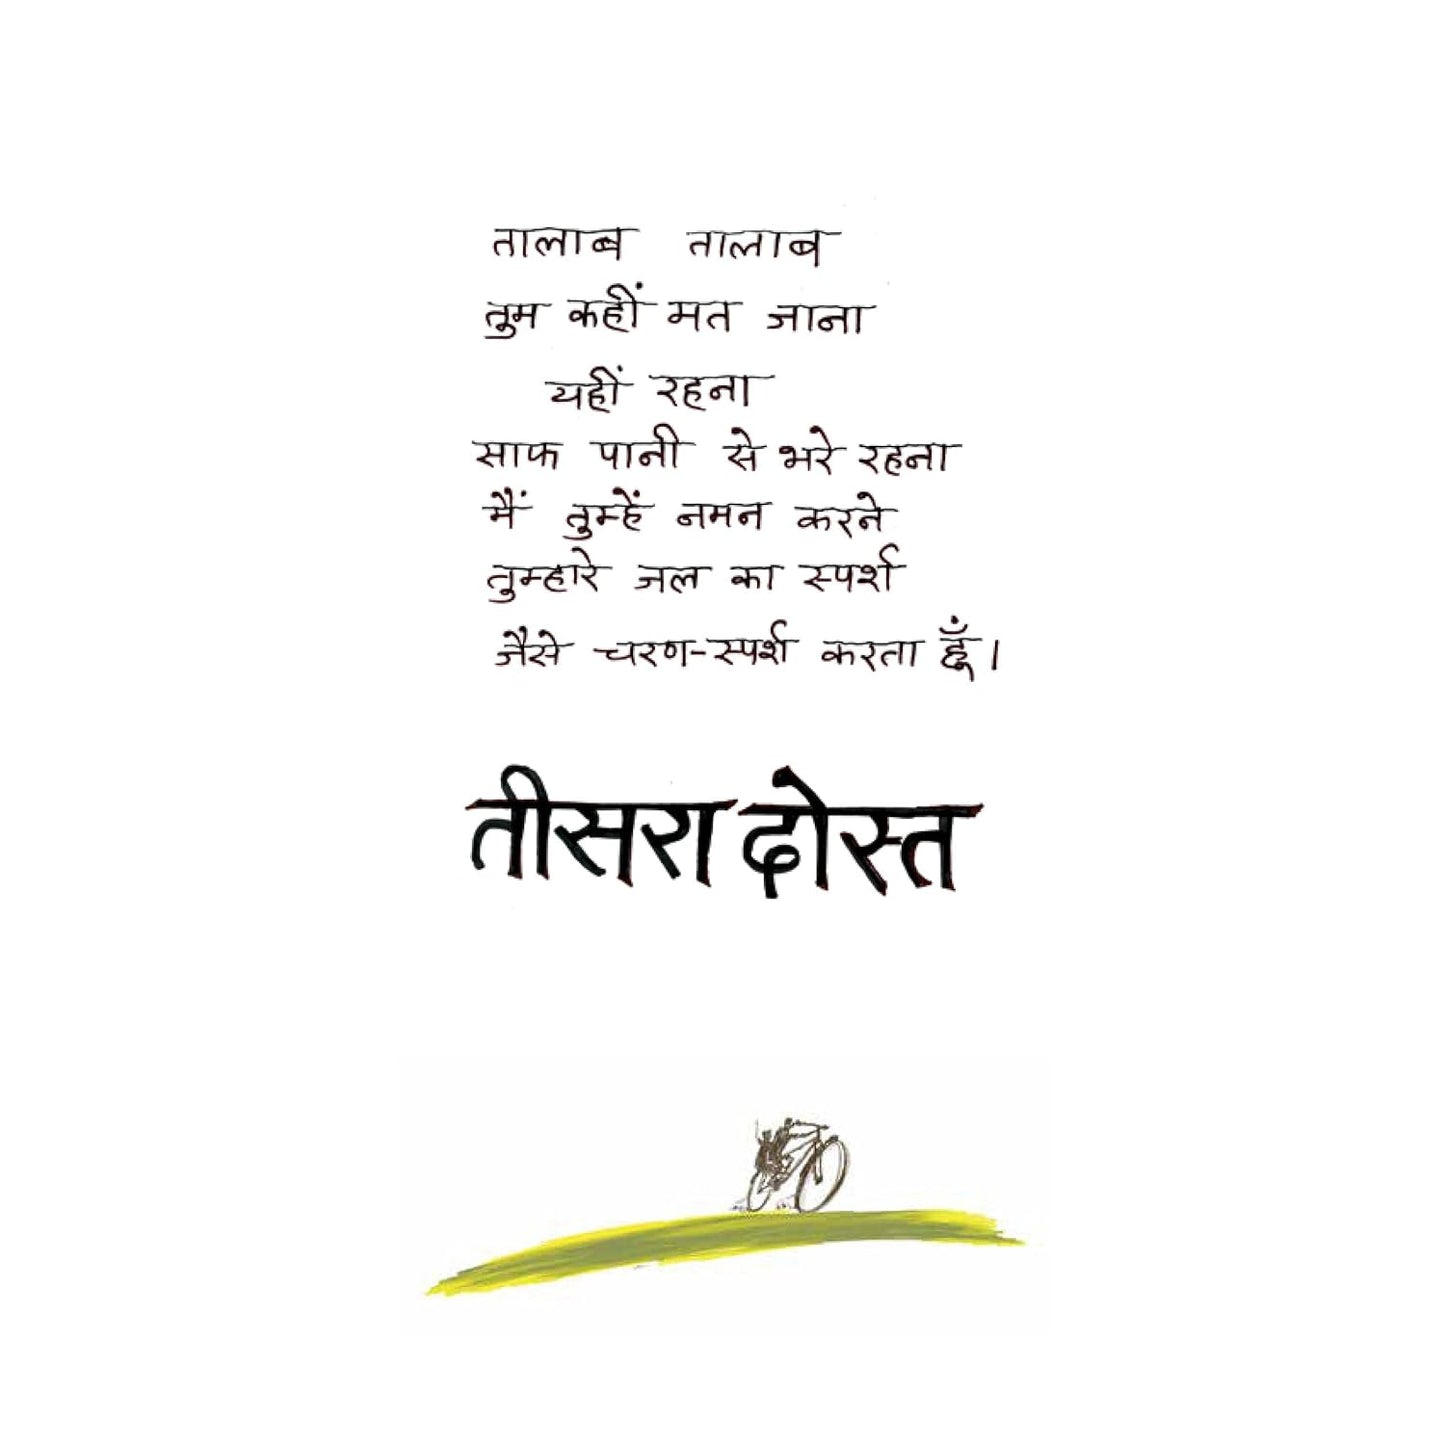 तालाब तालाब
तुम कहीं मत जाना
यहीं रहना
साफ पानी से भरे रहना
मैं तुम्हें नमन करने
तुम्हारे जल का स्पर्श
जैसे चरण-स्पर्श करता हूँ।
तीसरा दोस्त